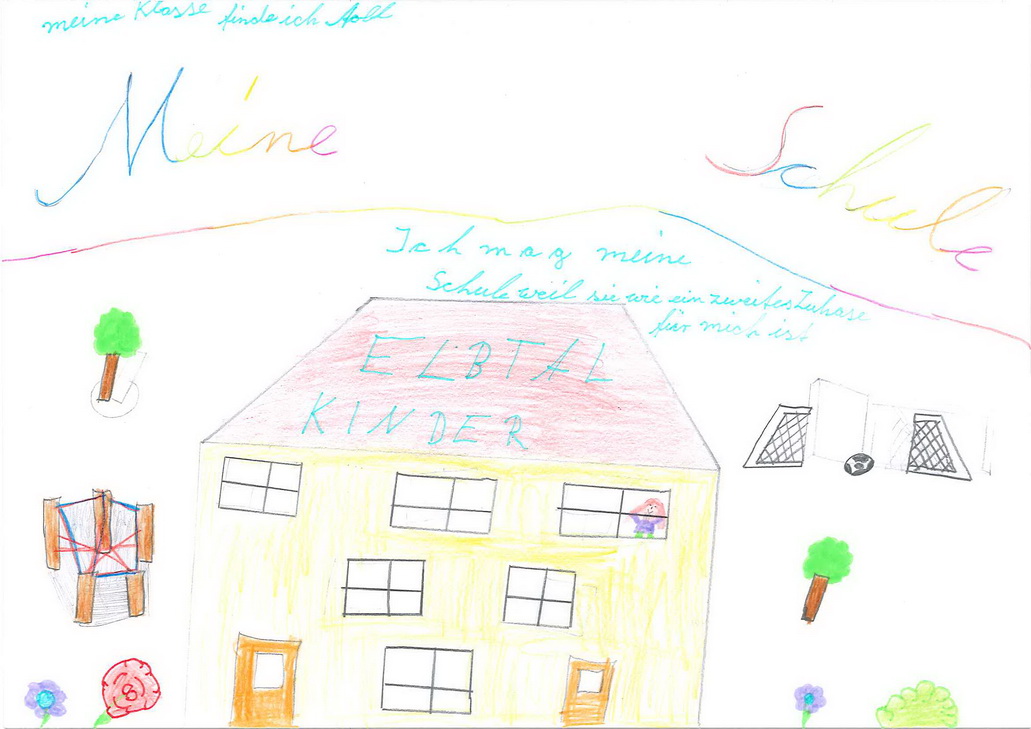 meine Klasse finde ich toll
Meine Schule
Ich mag meine
Schule weil sie wie ein zweites Zuhase
für mich ist
ELBTAL
KINDER